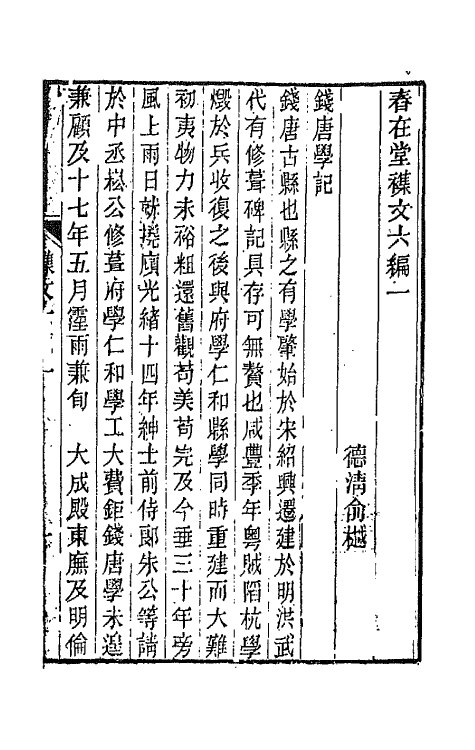 春在堂襍文六編一
德清俞樾
錢唐學記
錢唐古縣也縣之有學肇始於宋紹興遷建於明洪武
代有修葺碑記具存可無贅也咸豐季年粵賊陷杭學
燬於兵收復之後與府學仁和縣學同時重建而大難
初夷物力未裕粗還舊觀苟美苟完及今垂三十年旁
風上雨日就撓廎光緒十四年紳士前侍郎朱公等請
於中丞崧公修葺府學仁和學工大費鉅錢唐學未遑
兼顧及十七年五月霪雨兼旬　大成殿東廡及明倫
襍文六